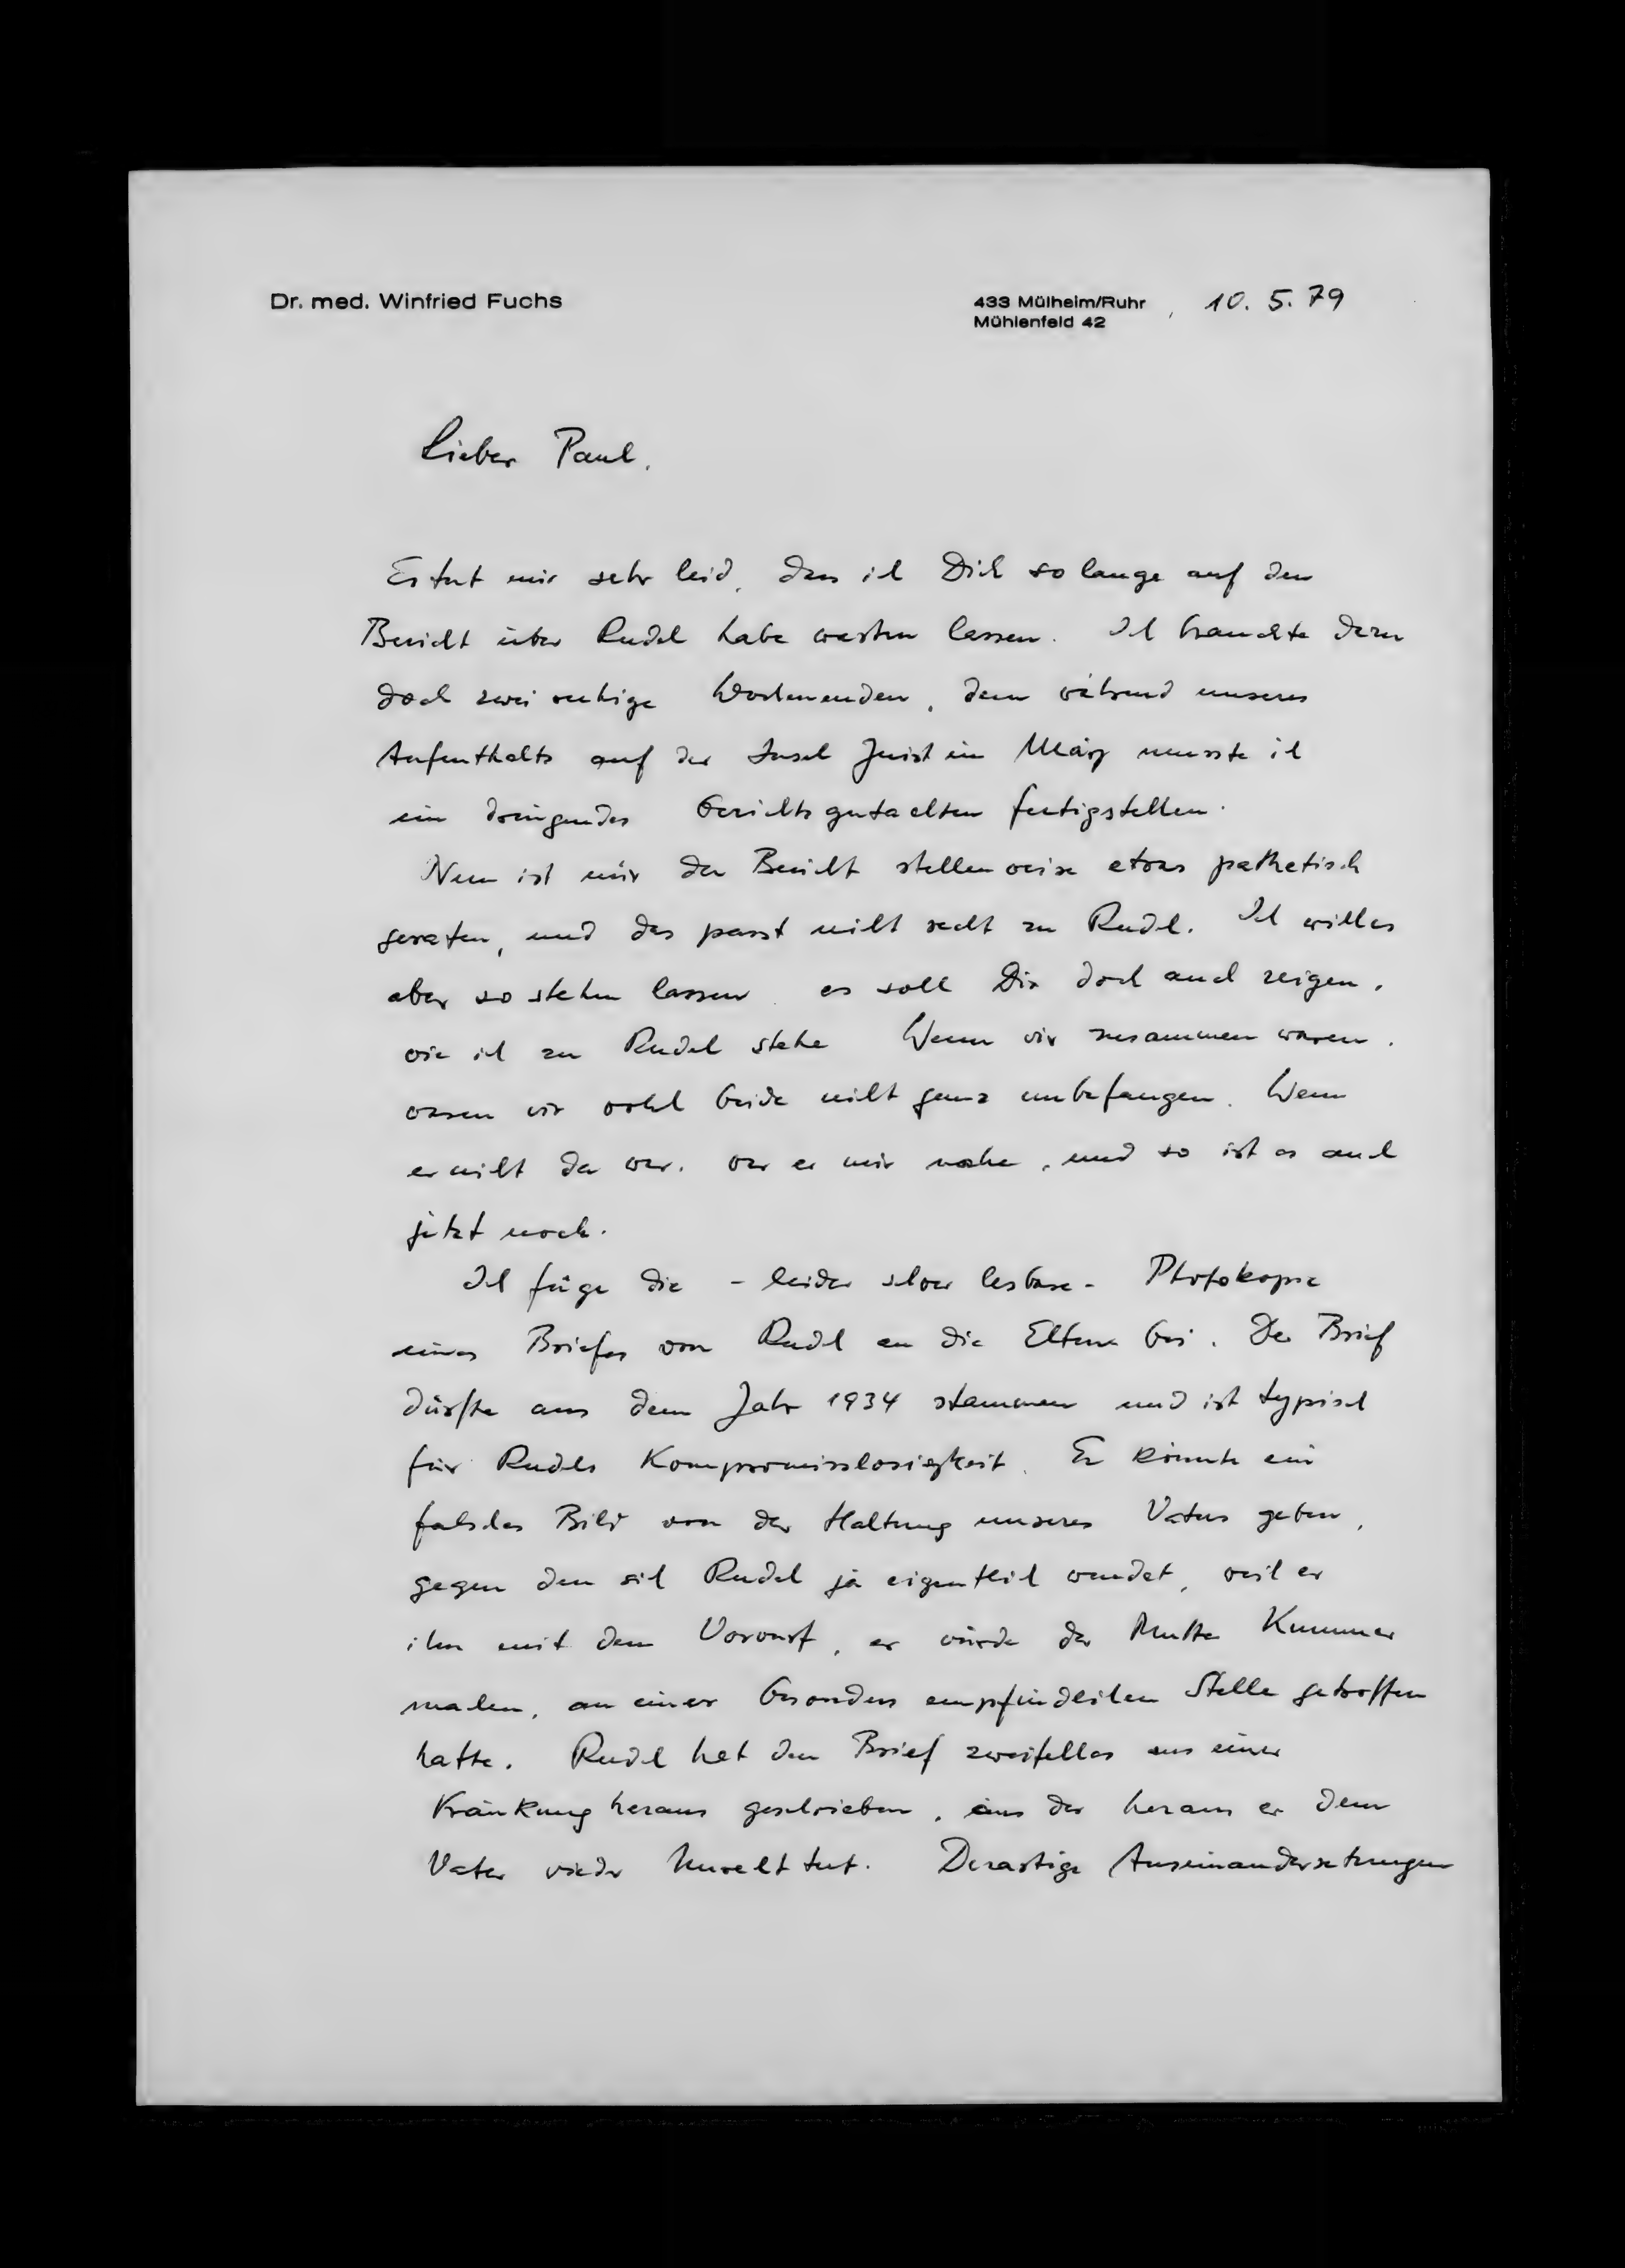 Dr. med. Winfried Fuchs
433 Mülheim/Ruhr , 10. 5. 79
Mühlenfeld 42
Lieber Paul,
Es tut mir sehr leid, dass ich Dich so lange auf den
Bericht über Rudel habe warten lassen. Ich brauchte dazu
doch zwei ruhige Wochenenden, denn während unseres
Aufenthalts auf der Insel Juist im März musste ich
ein dringendes Gerichtsgutachten fertigstellen.
Nun ist mir der Bericht stellenweise etwas pathetisch
geraten, und das passt nicht recht zu Rudel. Ich will es
aber so stehen lassen, es soll Dir doch auch zeigen,
wie ich zu Rudel stehe. Wenn wir zusammen waren,
waren wir wohl beide nicht ganz unbefangen. Wenn
er nicht da war, war er mir nahe, und so ist es auch
jetzt noch.
Ich füge die - leider schwer lesbare - Photokopie
eines Briefes von Rudel an die Eltern bei. Der Brief
dürfte aus dem Jahr 1934 stammen und ist typisch
für Rudels Kompromisslosigkeit. Er könnte ein
falsches Bild von der Haltung unseres Vaters geben,
gegen den sich Rudel ja eigentlich wendet, weil er
ihn mit dem Vorwurf, er würde der Mutter Kummer
machen, an einer besonders empfindlichen Stelle getroffen
hatte. Rudel hat den Brief zweifellos aus einer
Kränkung heraus geschrieben, aus der heraus er dem
Vater wieder Unrecht tut. Derartige Auseinandersetzungen